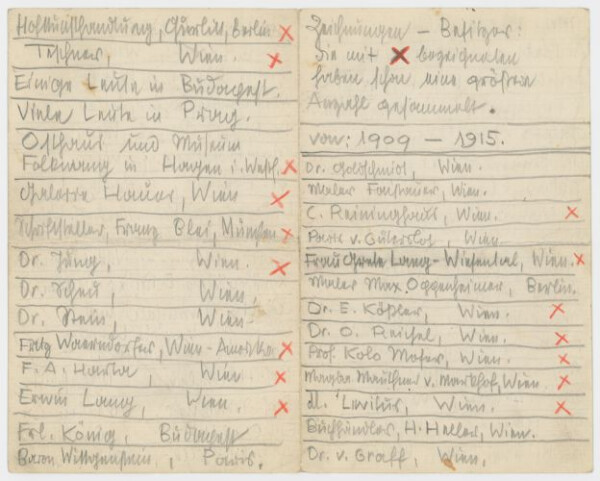 Hofkunsthandlung, Gurlitt, Berlin ×
Teschner, Wien. ×
Einige Leute in Budapest.
Viele Leute in Prag.
Osthaus und Museum
Folkwang in Hagen i. Westf. ×
Galerie Hauer, Wien ×
Schriftsteller, Franz Blei, München ×
Dr. Jung, Wien. ×
Dr. Scheu, Wien.
Dr. Stein, Wien
Fritz Waerndorfer, Wien-Amerika ×
F. A. Harta, Wien ×
Erwin Lang, Wien. ×
Frl. König, Budapest
Baron Wittgenstein, Paris.
Zeichnungen – Besitzer:
die mit × bezeichneten
haben schon eine größere
Anzahl gesammelt.
von: 1909 – 1915.
Dr. Goldschmidt, Wien.
Maler Faistauer, Wien.
C. Reininghaus, Wien. ×
Paris v. Gütersloh, Wien
Frau Grete Lang-Wiesental, Wien. ×
Maler Max Oppenheimer, Berlin.
Dr. E. Köpler, Wien. ×
Dr. O. Reichel, Wien. ×
Prof. Kolo Moser, Wien. ×
Magda Mauthner v. Markhof, Wien. ×
Wien. ×
Buchhändler, H. Heller, Wien.
Dr. v. Graff, Wien.